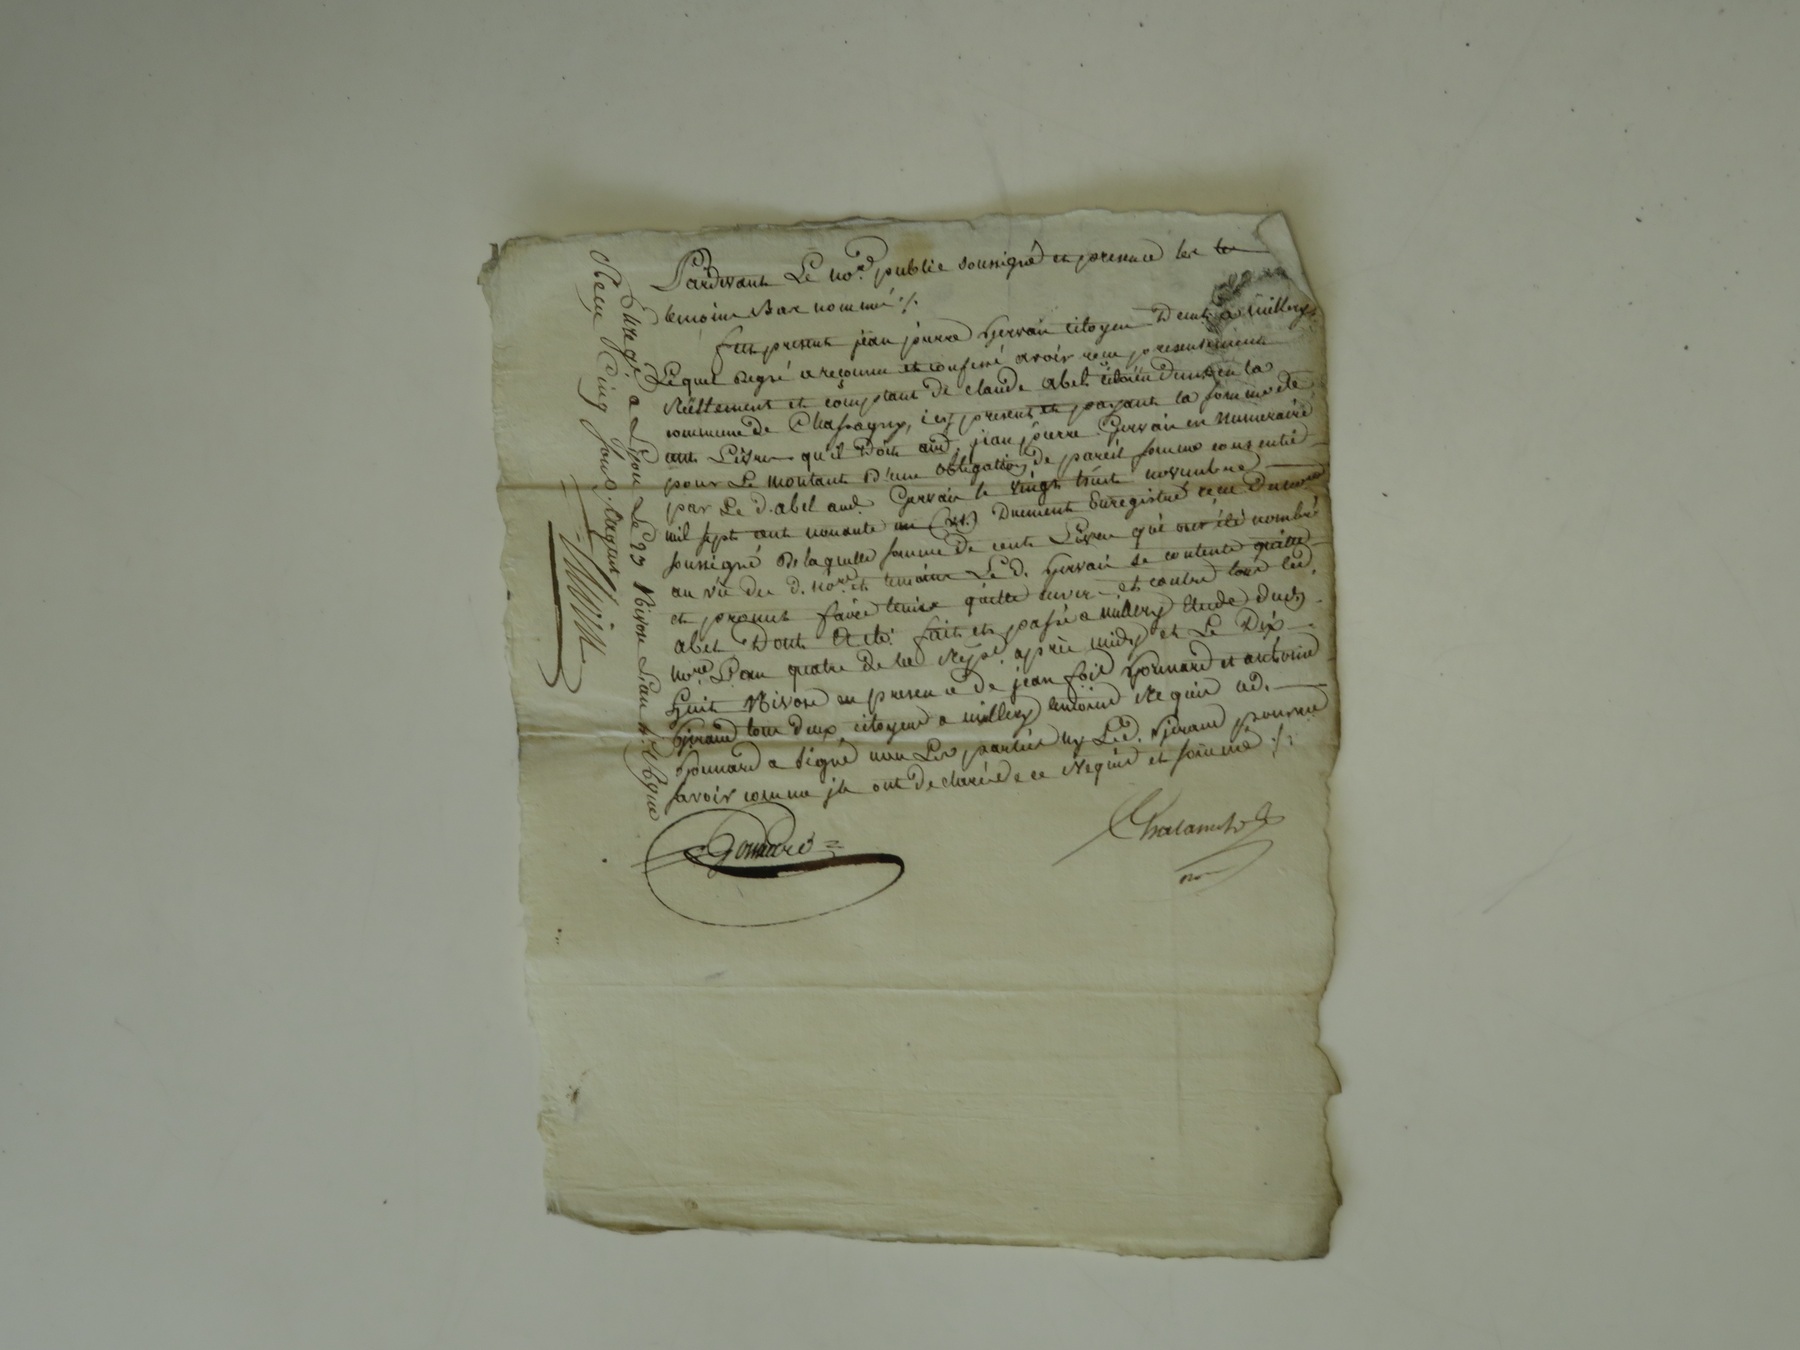 Pardevant Le no.re public soussigné et presence les te
temoins Bas nommé ./.
fut present jean pierre Gervais citoyen Demt. a millery
Lequel degré a reconnu et confessé avoir reçu presentement
Réellement et comptant de claude abel citoien Demt. en la
commune de Chassagny, icy present et payant la somme de
cent Livres qu'il Doit aud. jean pierre Gervais en numeraire
pour Le montant D'une obligation de pareil somme consentie
par Le d. abel aud. Gervais le vingt huit novembre
mil sept cent nonante un (v.s.) Duement Enregistré reçue Du no.re
soussigné De laquelle somme de cent Livres qui ont été nombré
au vue du d. no.re et temoins Le d. Gervais se contente quitte
et promet faire tenir quitte envers et contre tous led.
abel Dont Acte fait et passé a millery Etude dud.
no.re L'an quatre de la Rep.e après midy et Le Dix
huit Nivose en presence de jean fois Gonnard et antoine
Giraud tous deux citoyens a millery temoins Requis led.
Gonnard a signé non Les parties ny Led. Giraud pour ne
savoir comme ils ont declaré de ce Requis et sommé ./.
Gonnard
Chalamel
no.re
Enregé. a Lyon Le 23 Nivose L'an 4.
Reçu Cinq